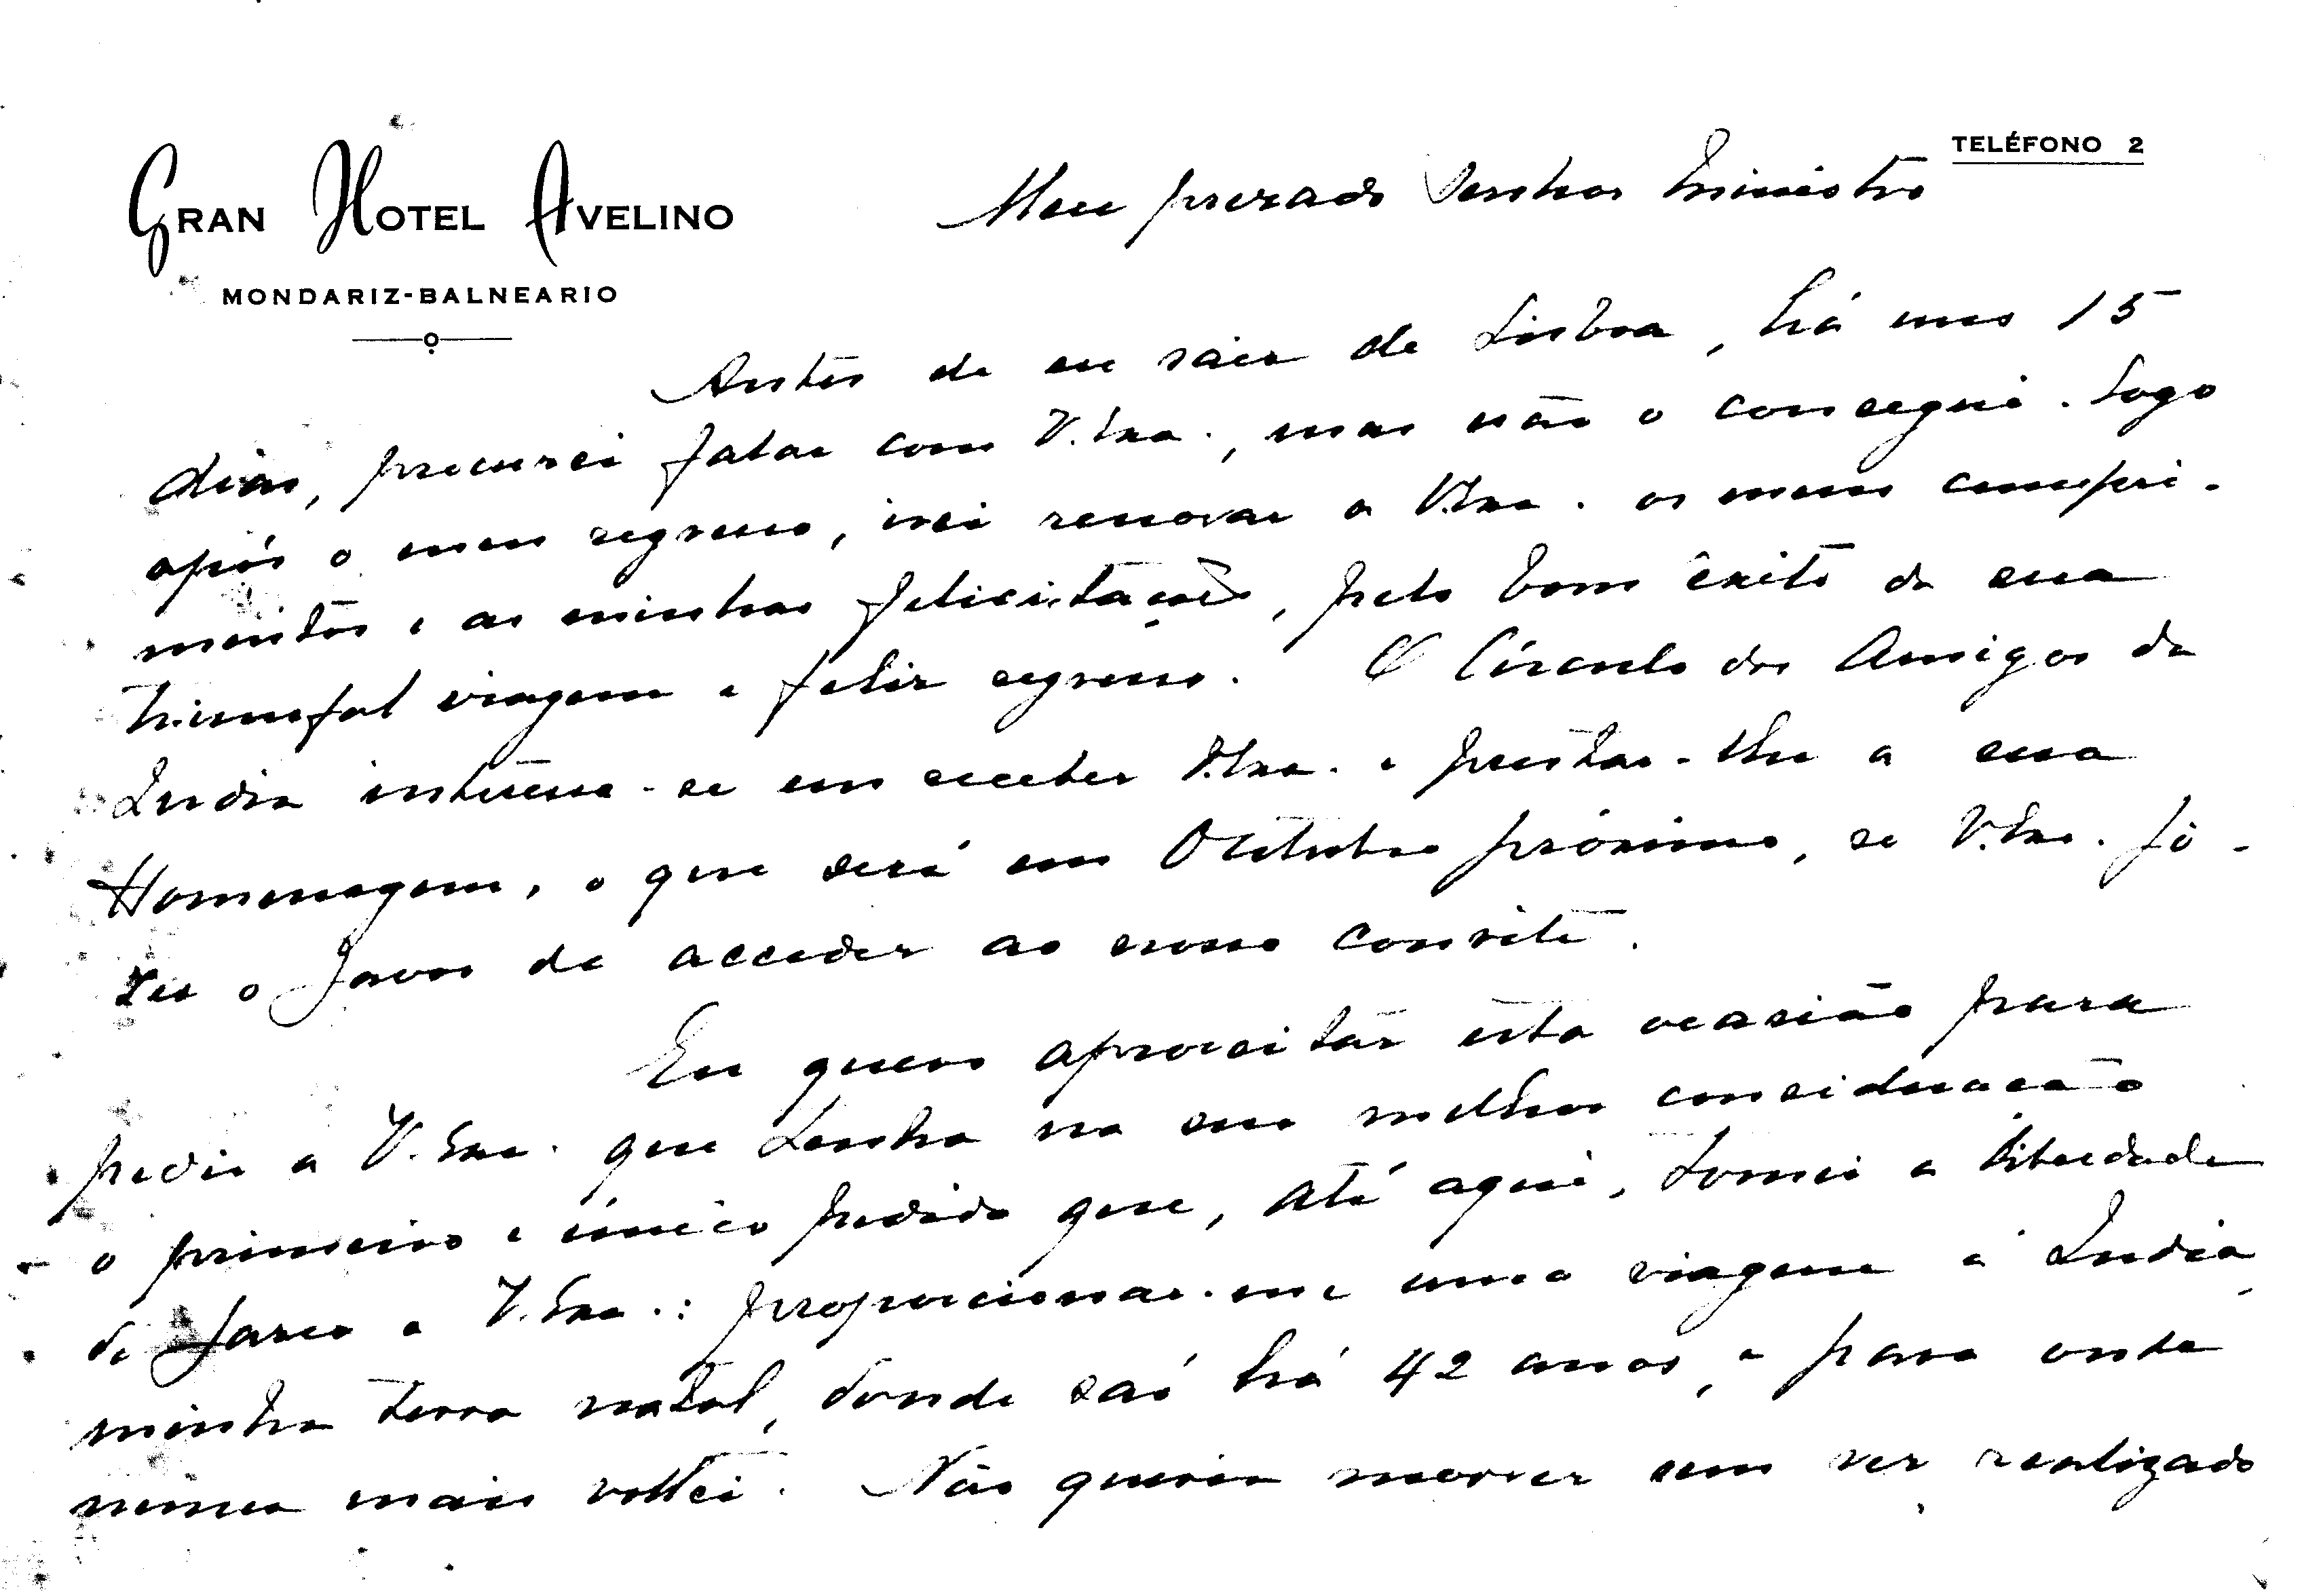 TELÉFONO 2
GRAN HOTEL AVELINO
MONDARIZ-BALNEARIO
Meu prezado Senhor Ministro
Antes de eu sair de Lisboa, há uns 15
dias, procurei falar com V. Exa., mas não o consegui. Logo
após o meu regresso, irei renovar a V. Exa. os meus cumpri-
mentos e as minhas felicitações, pelo bom êxito da sua
triunfal viagem e feliz regresso. O Círculo dos Amigos da
India interessa-se em receber V. Exa. e prestar-lhe a sua
Homenagem, o que será em Outubro próximo, se V. Exa. fi-
zer o favor de acceder ao nosso convite.
Eu quero aproveitar esta ocasião para
pedir a V. Exa. que tenha na sua melhor consideração
o primeiro e único pedido que, até aqui, tomei a liberdade
de fazer a V. Exa.: proporcionar-me uma viagem à India,
minha terra natal, donde saí há 42 anos, e para onde
nunca mais voltei. Não queria morrer sem ver realizado